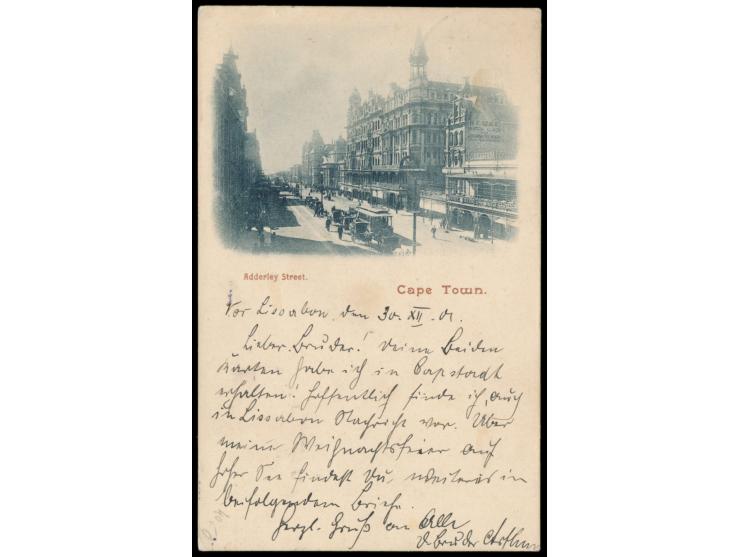 Adderley Street.
Cape Town.
Vor Lissabon, den 30. XII. 01.
Lieber Bruder! Deine Beiden
Karten habe ich in Capstadt
erhalten! Hoffentlich finde ich, auch
in Lissabon Nachricht vor. Über
meine Weihnachtsfeier auf
hoher See findest Du, weiteres in
beifolgendem Briefe.
Herzl. Gruß an Alle
D. Bruder Arthur